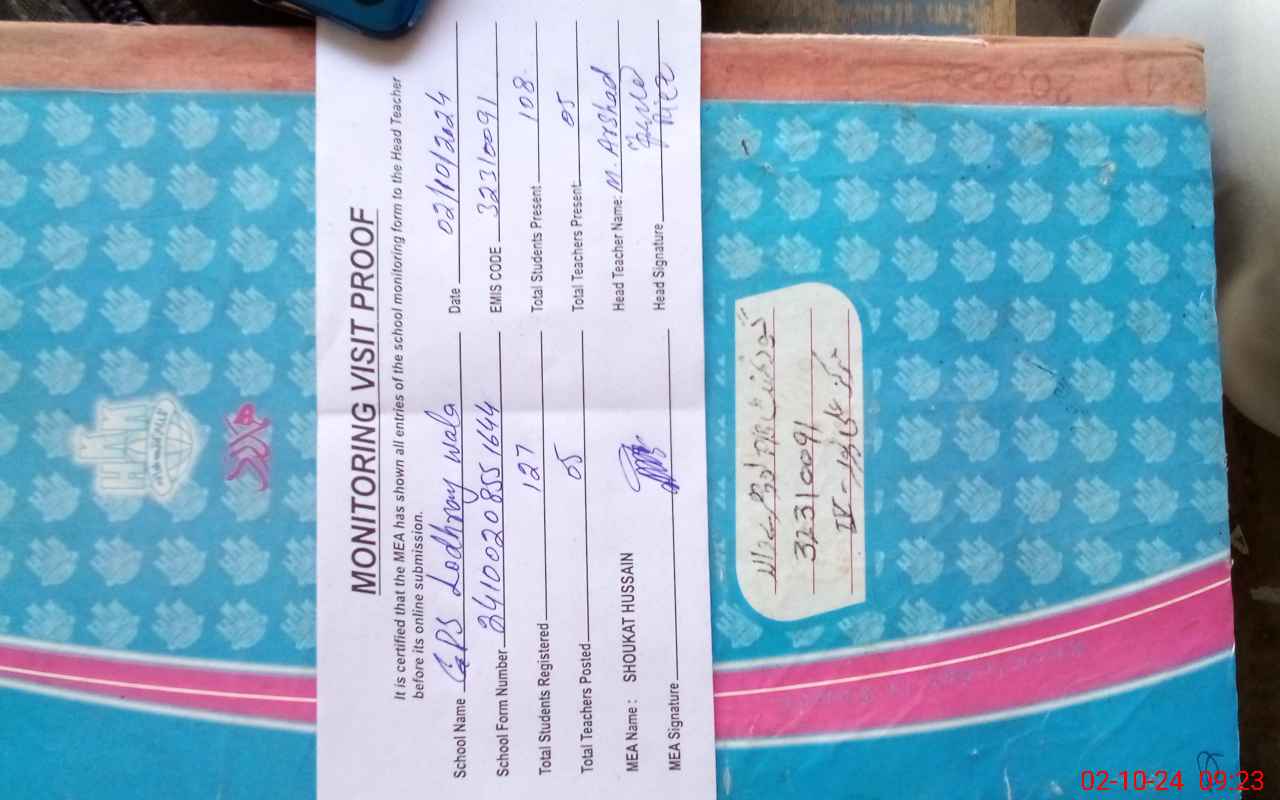 MONITORING VISIT PROOF
It is certified that the MEA has shown all entries of the school monitoring form to the Head Teacher
before its online submission.
School Name GPS Lodhray wala Date 02/10/2024
School Form Number 2410020855 1644 EMIS CODE 32310091
Total Students Registered 127 Total Students Present 108
Total Teachers Posted 05 Total Teachers Present 05
MEA Name : SHOUKAT HUSSAIN Head Teacher Name: M. Arshad
MEA Signature Head Signature
32310091
IV
02-10-24 09:23